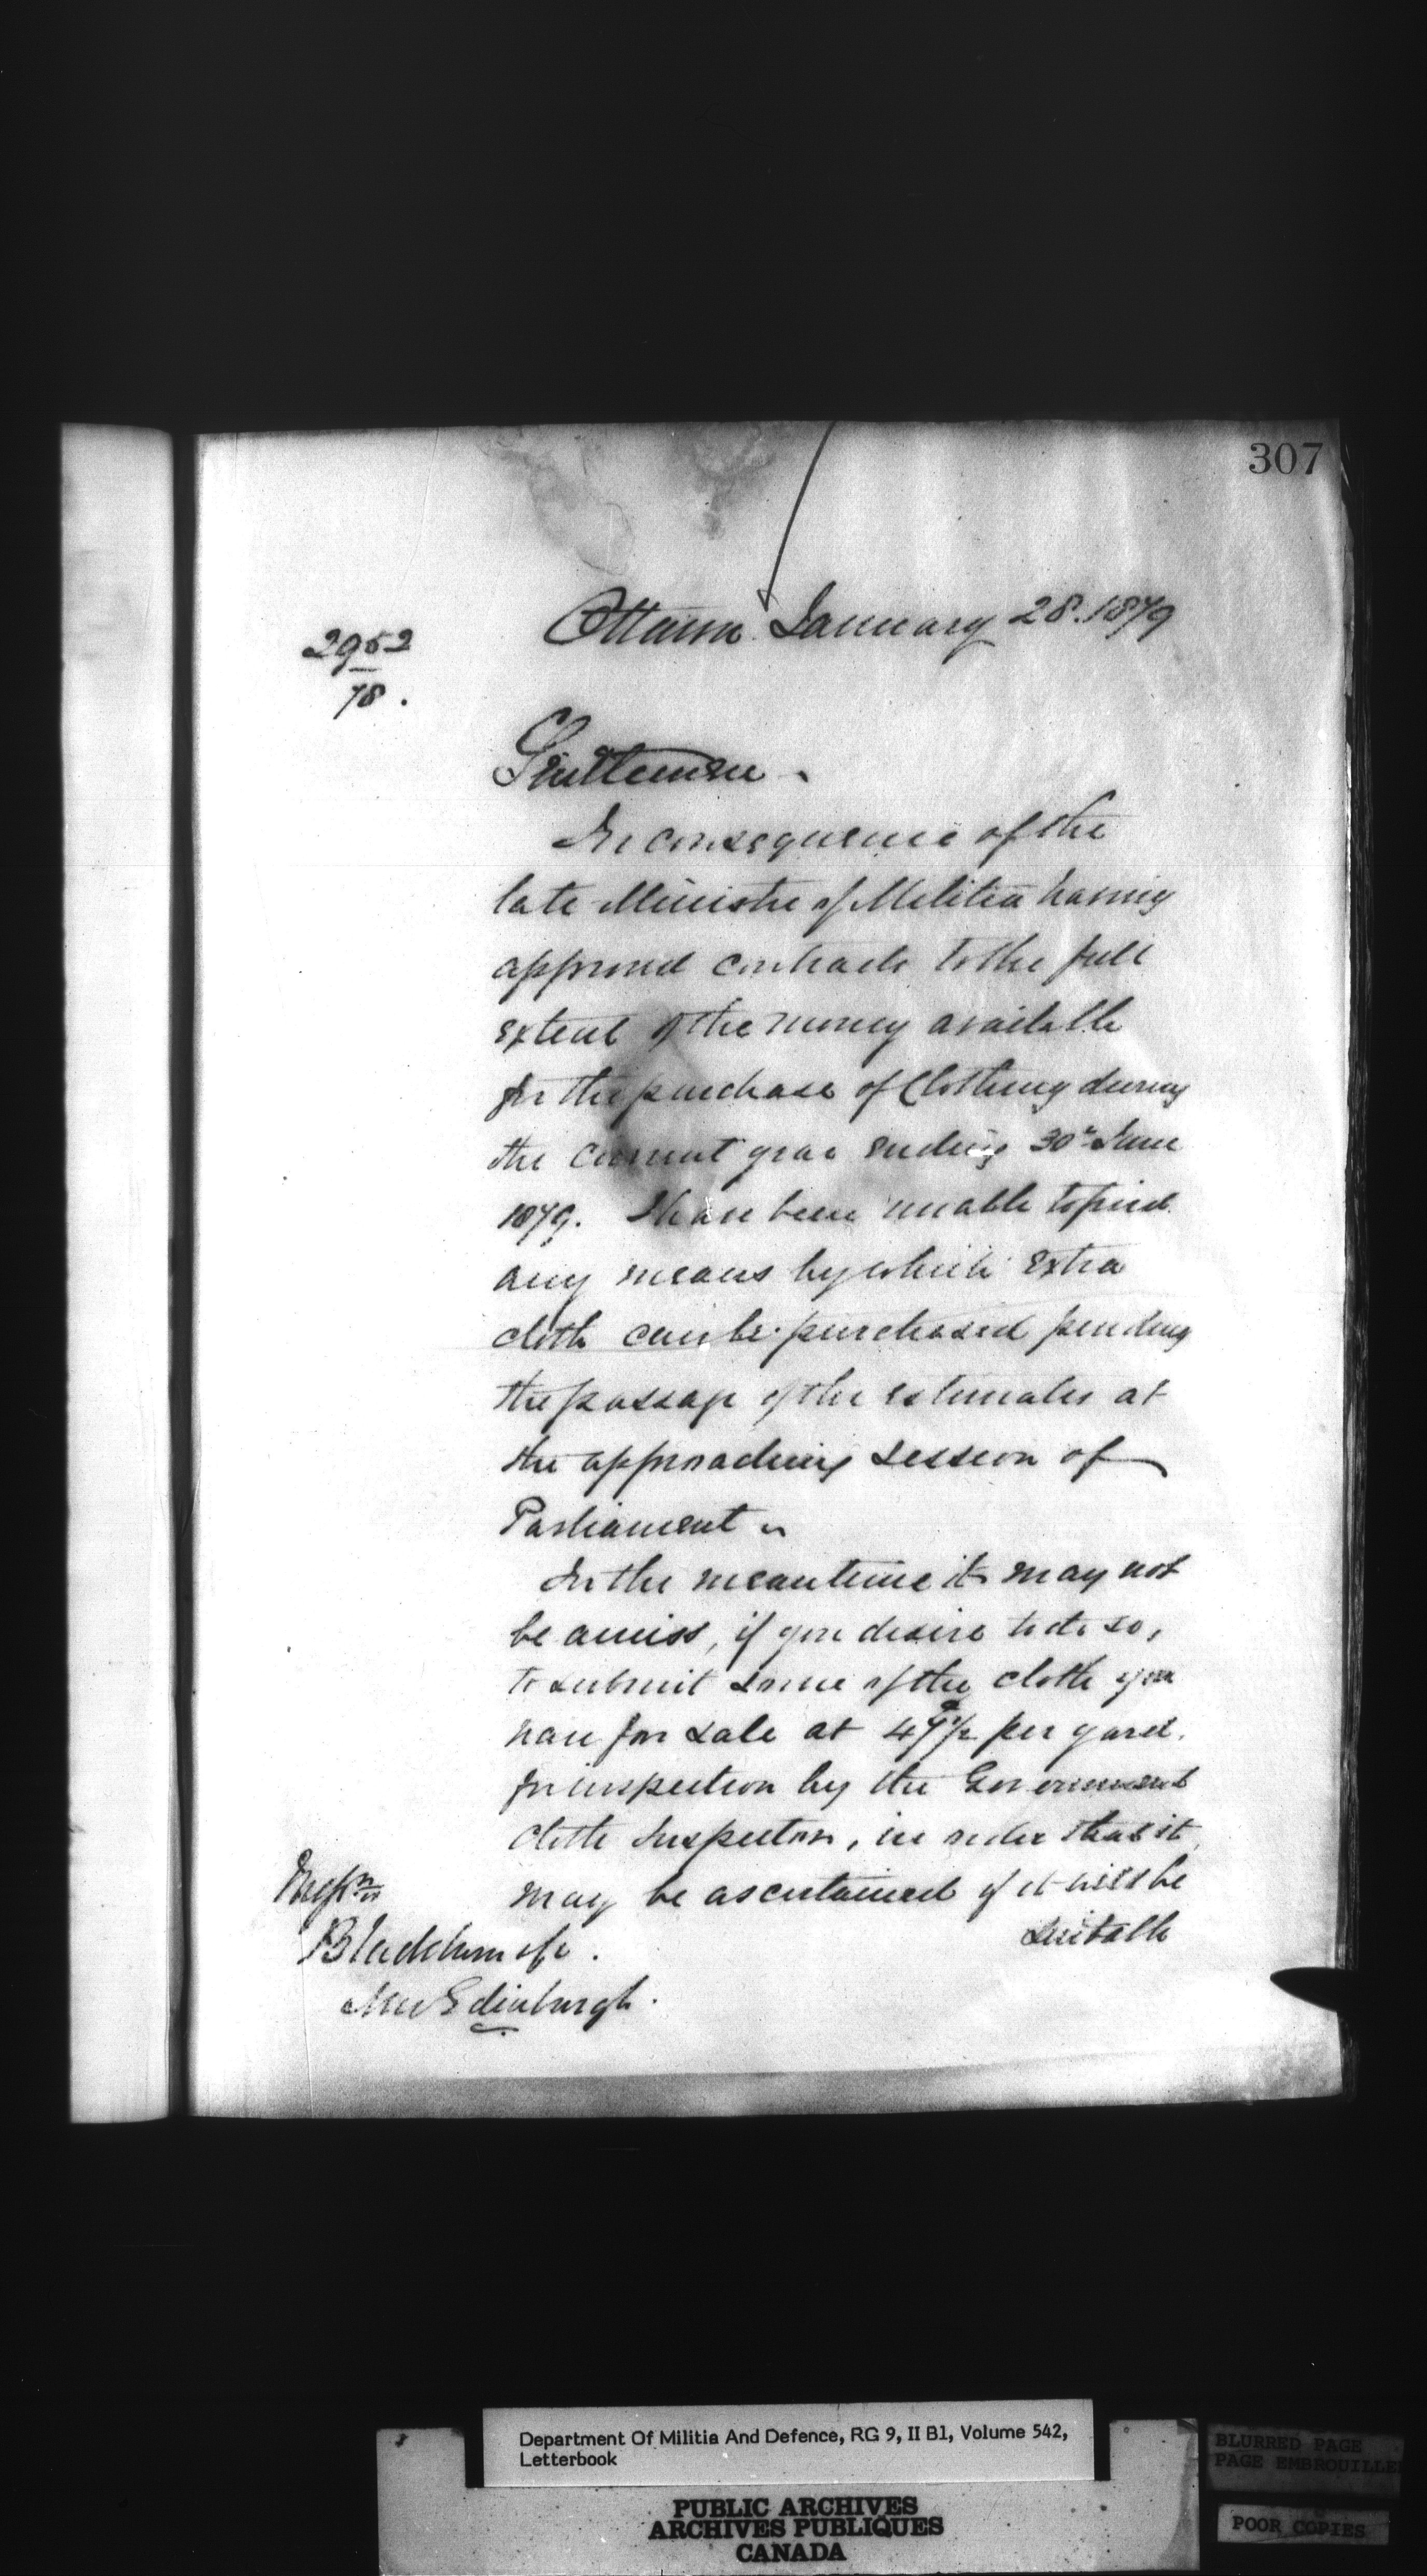 307
Ottawa January 28. 1879
2952
78.
Gentlemen.
In consequence of the
late Minister of Militia having
approved contracts to the full
extent of the money available
for the purchase of Clothing during
the current year ending 30th June
1879. I have been unable to find
any means by which extra
cloth can be purchased pending
the passage of the estimates at
the approaching session of
Parliament.
In the meantime it may not
be amiss, if you desire to do so,
to submit some of the cloth you
have for sale at 47½ per yard.
for inspection by the Government
cloth Inspector, in order that it
may be ascertained if it will be
suitable
Messrs
Blackburn &c.
New Edinburgh.
Department Of Militia And Defence, RG 9, II B1, Volume 542,
Letterbook
PUBLIC ARCHIVES
ARCHIVES PUBLIQUES
CANADA
BLURRED PAGE
PAGE EMBROUILLE
POOR COPIES